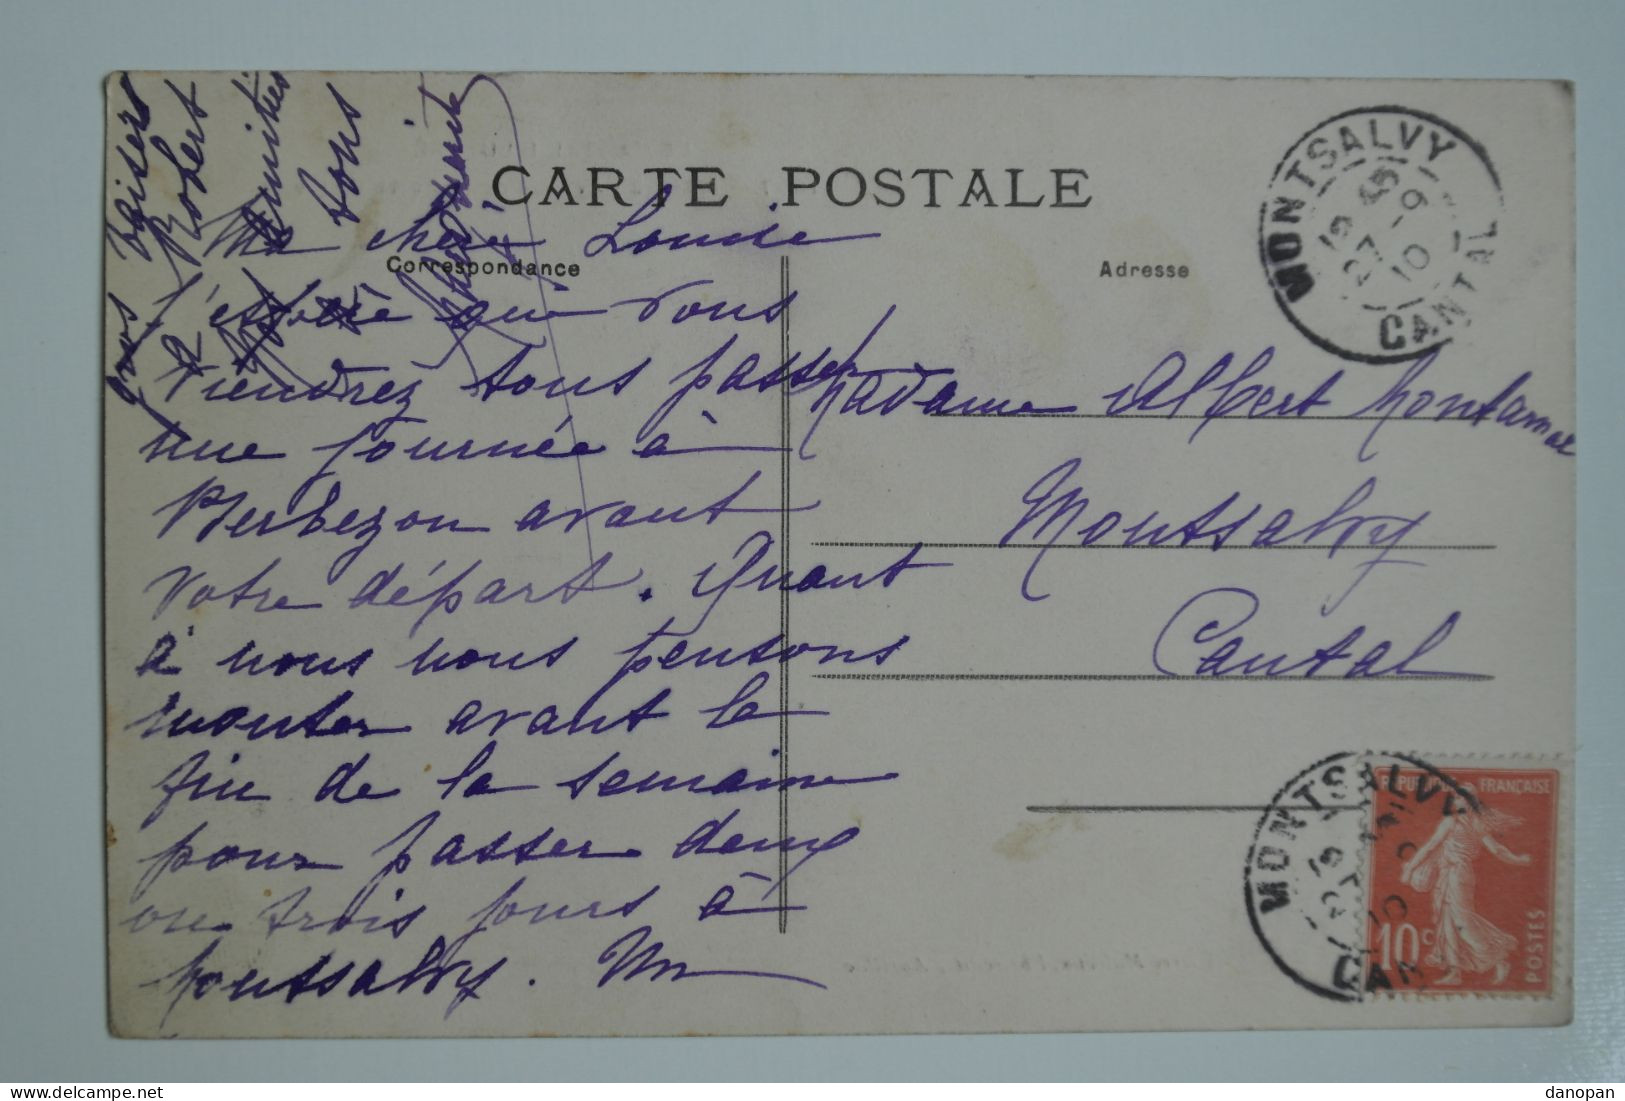 CARTE POSTALE
Correspondance
Adresse
Ma chère Louise
J'espère que vous
viendrez tous passer
une journée à
Berbezon avant
votre départ. Quant
à nous nous pensons
monter avant la
fin de la semaine
pour passer deux
ou trois jours à
Montsalvy. Un
gros baisers
à Robert
Amitiés
vous
Madame Albert Montamat
Montsalvy
Cantal
MONTSALVY
CANTAL
19 45
27 -9
10
MONTSALVY
CAN
RÉPUBLIQUE FRANÇAISE
10c
POSTES
Delcampe.net
danopan